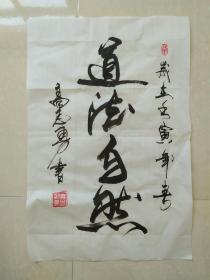 岁在壬寅年春
道法自然
高志勇书